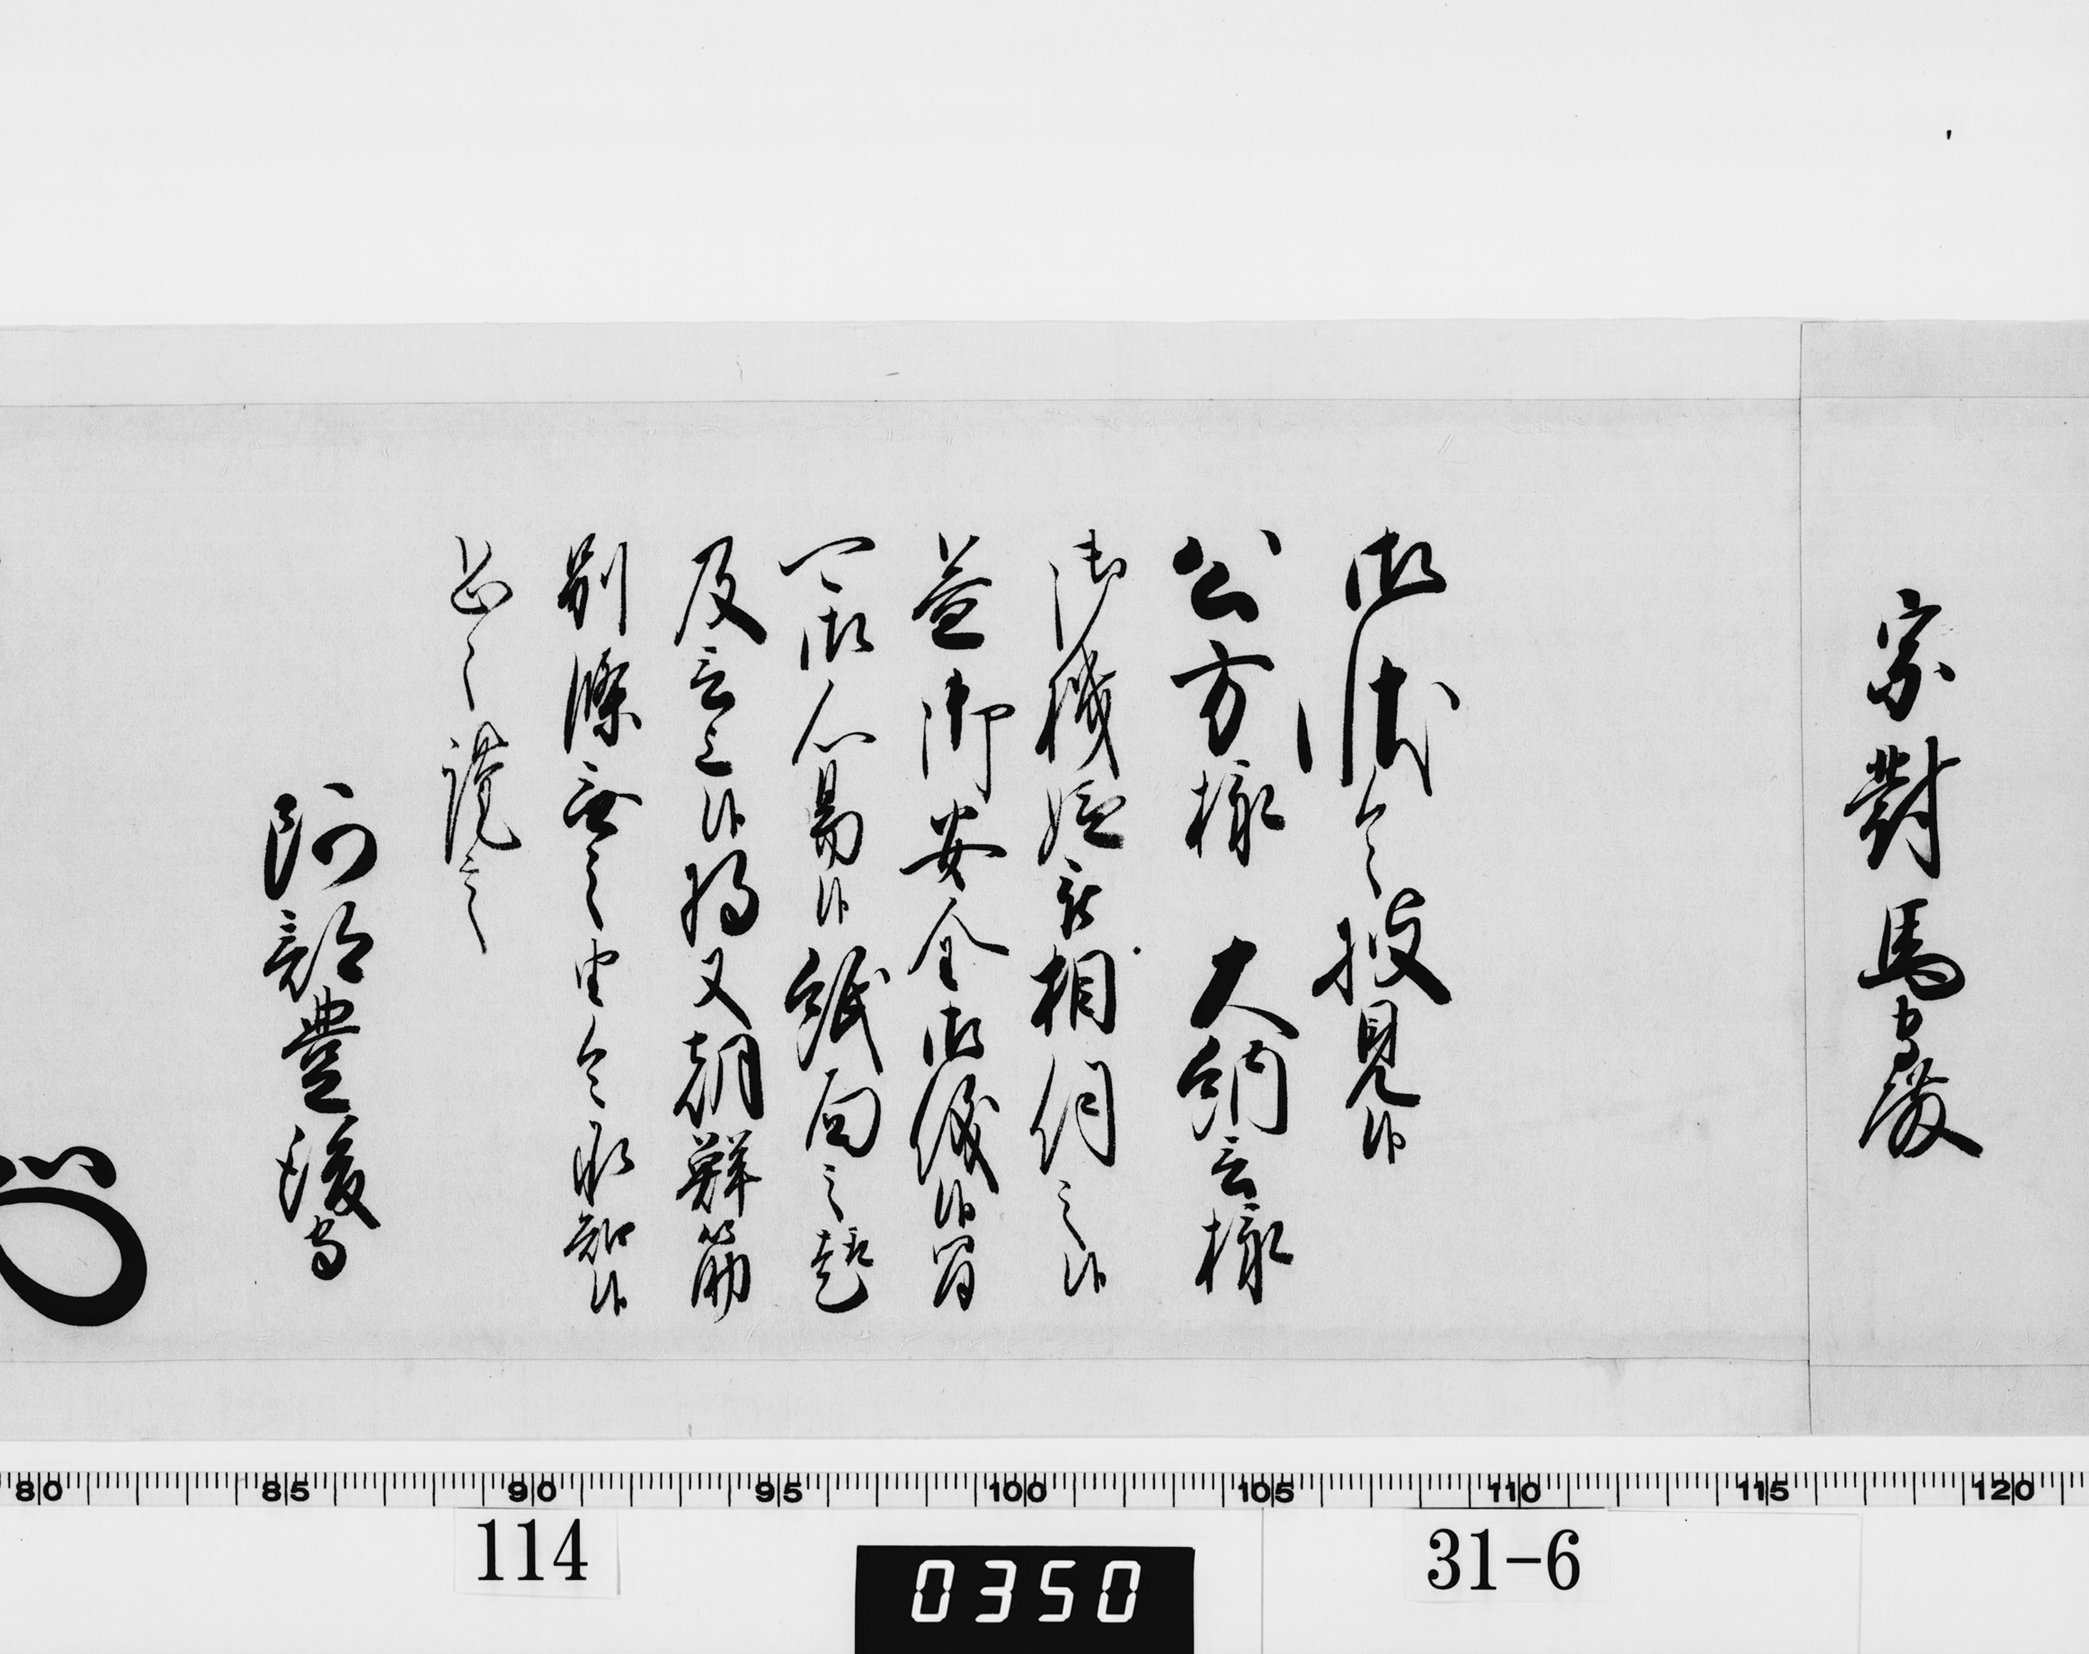 宗對馬守殿
御状令披見候
公方様　大納言様
御機嫌被相伺之候
益御安全御儀候間
可御心易候紙面之趣
及言上候将又朝鮮筋
別條無之由令承知候
恐々謹言
阿部豊後守
80 85 90 95 100 105 110 115 120
114
0350
31-6